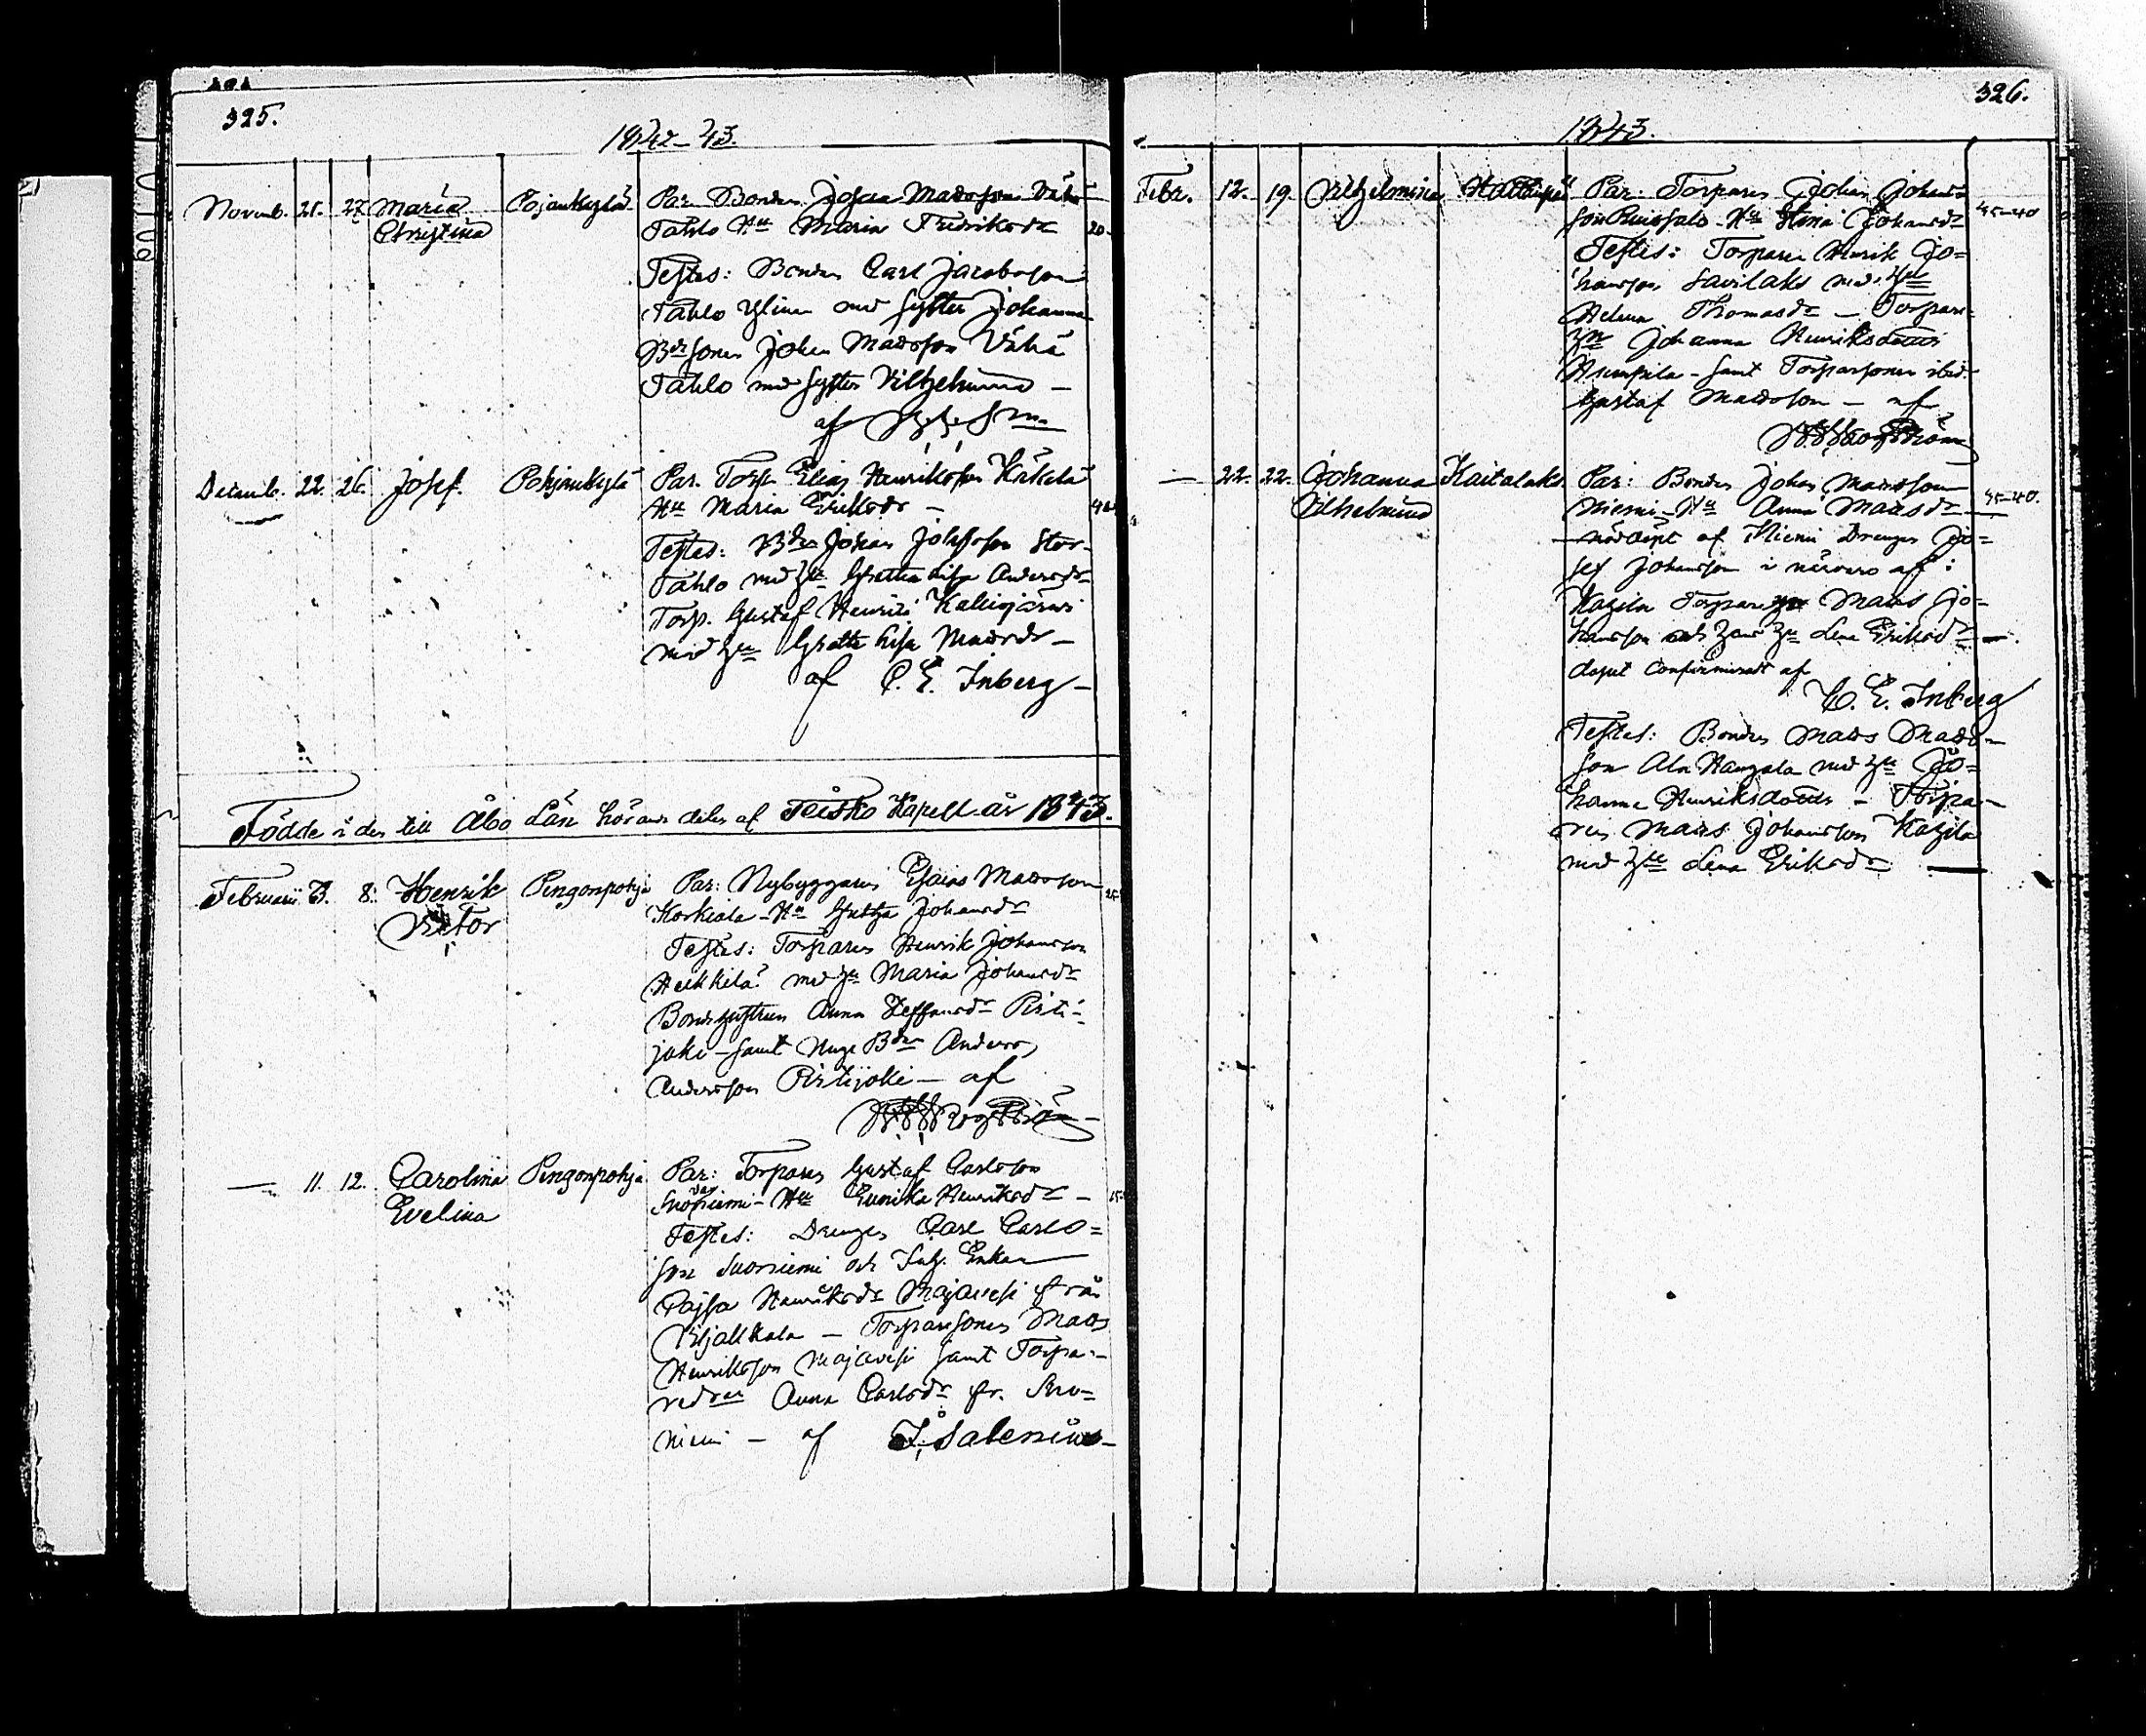 325.
1842-43.
Novemb. 21. 27. Maria Pojankylä Par. Bonden Johan Madsson Vähä
Christina Pahlo Hu Maria Fredriksdr 20-
Testes: Bonden Carl Jacobsson
Pahlo Ylinen med syster Johanna
Bdesonen Johan Madsson Vähä
Pahlo med syster Vilhelmina —
af
Decemb. 22. 26. Josef. Pohjankylä Par. Torp. Elias Henriksson Käkelä
Hu Maria Eriksdr —
Testes: Bden Johan Johansson Stor-
Pahlo med hu Gretha Lisa Andersdr
Torp. Gustaf Henrici
med hu Gretha Lisa Madsdr —
af C. E. Inberg —
Födde i den till Åbo Län hörande delen af Teisko Kapell år 1843.
Februarii 3. 8. Henrik Pengonpohja Par: Nybyggaren Esaias Madsson
Victor Korkiala - Hu Johansdr
Testes: Torparen Henrik Johansson
Heikkilä med hu Maria Johansdr
Bondehustrun Anna Steffansdr Risti-
joki — samt Unge Bden Anders
Andersson Ristijoki — af
— 11. 12. Carolina Pengonpohja Par: Torparen Gustaf Carlsson
Evelina Suoniemi - Hu Eunika Henriksdr — 25-
Testes: Drengen Carl Carls=
son Suoniemi och Enkan
Cajsa Henriksdr Majavesi från
Viljakkala — Torparesonen Mads
Henriksson Majavesi samt Torpa-
redrn Anna Carlsdr fr. Suo=
niemi — af F. Salenius —
326.
1843.
Febr. 12. 19. Vilhelmina Par: Torparen Johan Johans=
son Hu Stina Johansdr 45-40
Testes: Torparen Henrik Jo=
hansson Savilaks med hu
Helena Thomasdr — Torpare
hu Johanna Henriksdotter
Humpila - samt Torparsonen ibid.
Gustaf Madsson — af
— 22. 22. Johanna Kaitalaks Par: Bonden Johan Madsson
Vilhelmina Niemi - Hu Anna Madsdr 35-40.
— nöddöpt af Niemi Drengen Jo=
sef Johansson i närvaro af:
Torparen Mads Jo=
hansson och hans hu Lena Eriksdr —
dopet confirmeradt af
C. E. Inberg
Testes: Bonden Mads Mads-
son Ala med hu Jo=
hanna Henriksdotter — Torpa-
ren Mads Johansson
med hu Lena Eriksdr —